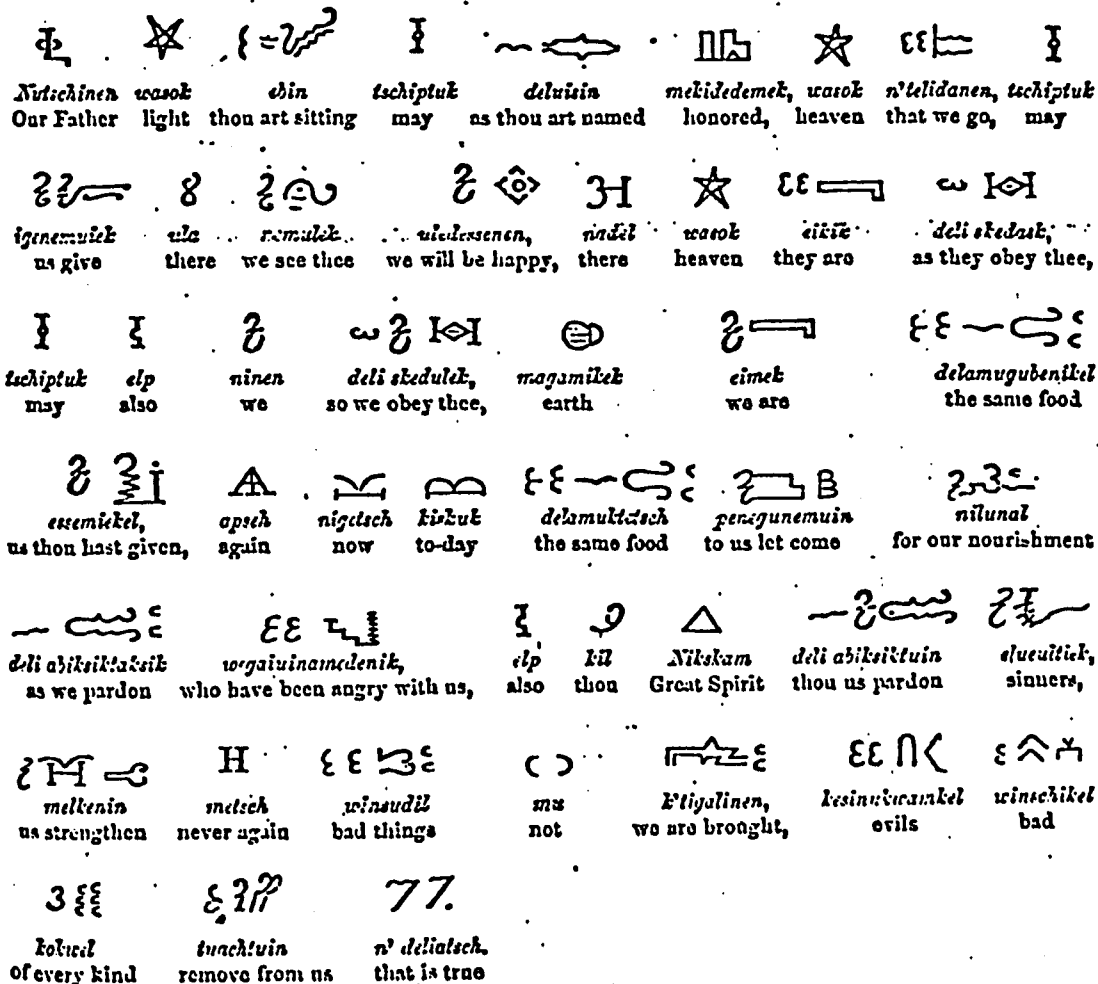 Nutschinen wasok ebin tschiptuk deluisin mekidedemek, wasok n'telidanen, tschiptuk
Our Father light thou art sitting may as thou art named honored, heaven that we go, may
igenemuiek ula nemulek uledessenen, nadel wasok eikik deli skedask,
us give there we see thee we will be happy, there heaven they are as they obey thee,
tschiptuk elp ninen deli skedulek, magamikek eimek delamugubenikel
may also we so we obey thee, earth we are the same food
essemiekel, apsch nigetsch kiskuk delamuktetsch penegunemuin nilunal
us thou hast given, again now to-day the same food to us let come for our nourishment
deli abiksiktaksik wegaiuinamedenik, elp kil Nikskam deli abiksiktuin elueultiek,
as we pardon who have been angry with us, also thou Great Spirit thou us pardon sinners,
melkenin metsch winsudil mu ktigalinen, kesinukwamkel winschikel
us strengthen never again bad things not we are brought, evils bad
kokwel tuachtuin n' deliatsch.
of every kind remove from us that is true